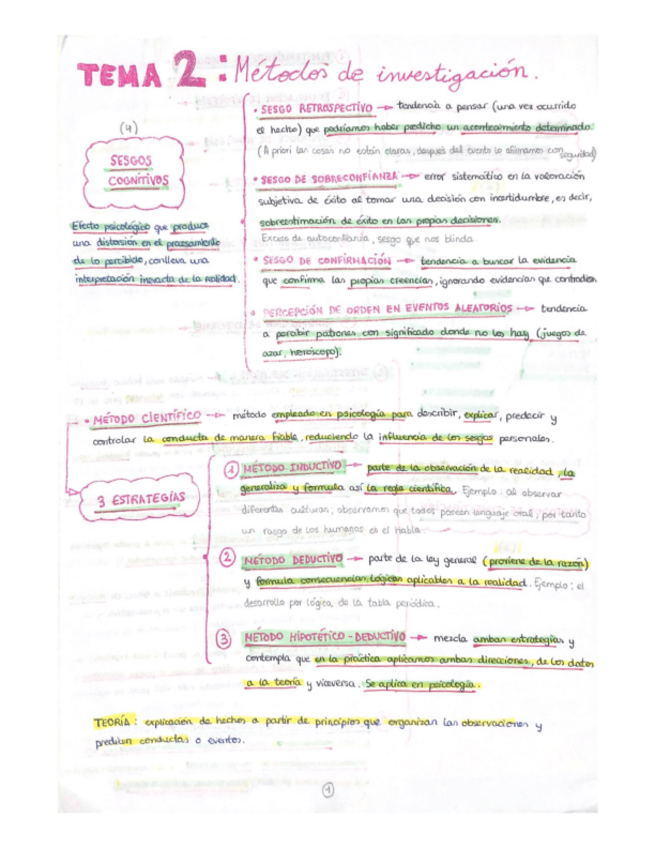 TEMA 2: Métodos de investigación.
(4)
SESGOS
COGNITIVOS
Efecto psicológico que produce
una distorsión en el procesamiento
de lo percibido, conlleva una
interpretación inexacta de la realidad.
• SESGO RETROSPECTIVO → tendencia a pensar (una vez ocurrido
el hecho) que podríamos haber predicho un acontecimiento determinado.
(A priori las cosas no están claras, después del evento lo afirmamos con seguridad)
• SESGO DE SOBRECONFIANZA → error sistemático en la valoración
subjetiva de éxito al tomar una decisión con incertidumbre, es decir,
sobreestimación de éxito en las propias decisiones.
Exceso de autoconfianza, sesgo que nos blinda.
• SESGO DE CONFIRMACIÓN → tendencia a buscar la evidencia
que confirma las propias creencias, ignorando evidencias que contradicen
• PERCEPCIÓN DE ORDEN EN EVENTOS ALEATORIOS → tendencia
a percibir patrones con significado donde no los hay (juegos de
azar, horóscopo).
• MÉTODO CIENTÍFICO → método empleado en psicología para describir, explicar, predecir y
controlar la conducta de manera fiable, reduciendo la influencia de los sesgos personales.
3 ESTRATEGIAS
1 MÉTODO INDUCTIVO → parte de la observación de la realidad, la
generaliza y formula así la regla científica. Ejemplo: al observar
diferentes culturas, observamos que todos poseen lenguaje oral; por tanto
un rasgo de los humanos es el habla.
2 MÉTODO DEDUCTIVO → parte de la ley general (proviene de la razón)
y formula consecuencias lógicas aplicables a la realidad. Ejemplo: el
desarrollo por lógica, de la tabla periódica.
3 MÉTODO HIPOTÉTICO-DEDUCTIVO → mezcla ambas estrategias y
contempla que en la práctica aplicamos ambas direcciones, de los datos
a la teoría y viceversa. Se aplica en psicología.
TEORÍA: explicación de hechos a partir de principios que organizan las observaciones y
predicen conductas o eventos.
1